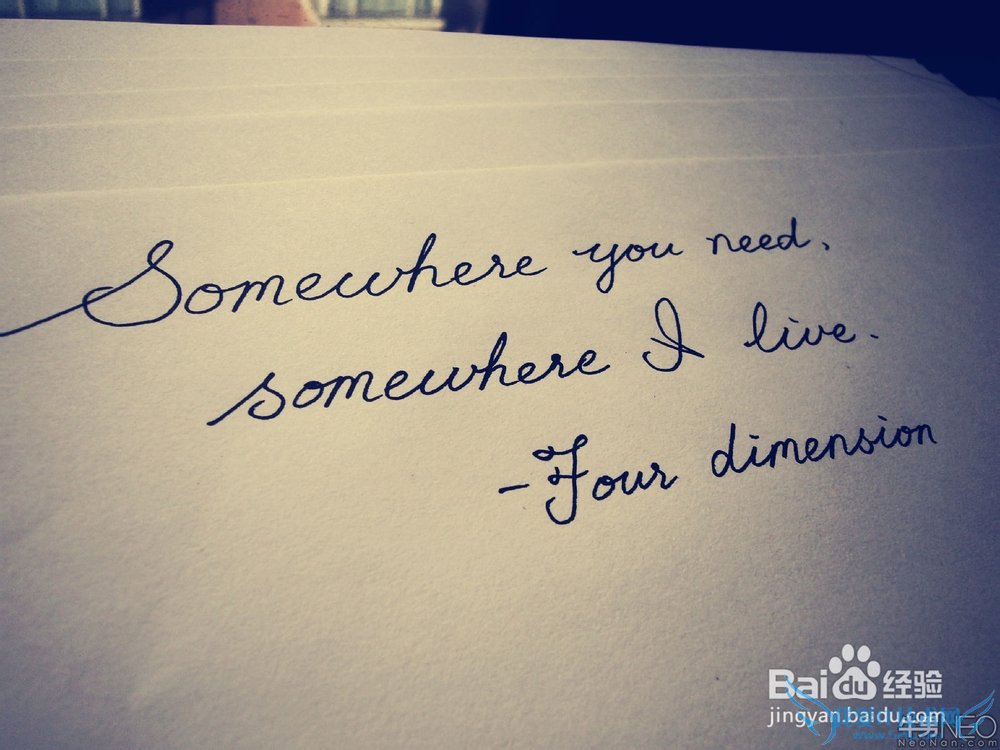 Somewhere you need,
somewhere I live.
-Four dimension
Baidu 经验
jingyan.baidu.com
牛男NEO
NeoNan.com